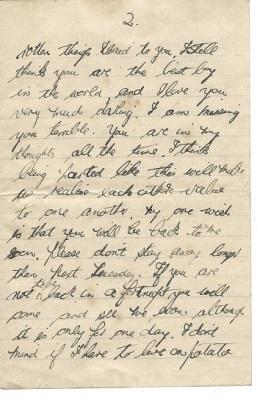 2.
rotten things I said to you. I still
think you are the best boy
in the world, and I love you
very much darling. I am missing
you terrible. You are in my
thoughts all the time. I think
being parted like this will make
us realise each others value
to one another. My one wish
is that you will be back to me
soon. Please don't stay away longer
than next Tuesday. If you are
not back in a fortnight you will
come and see me soon although
it is only for one day. I don't
mind if I have to live on potato